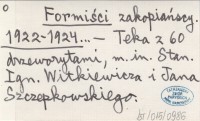 Formiści zakopiańscy.
1922-1924... — Teka z 60
drzeworytami, m.in. Stan.
Ign. Witkiewicza i Jana
Szczepkowskiego.
br/015/0986